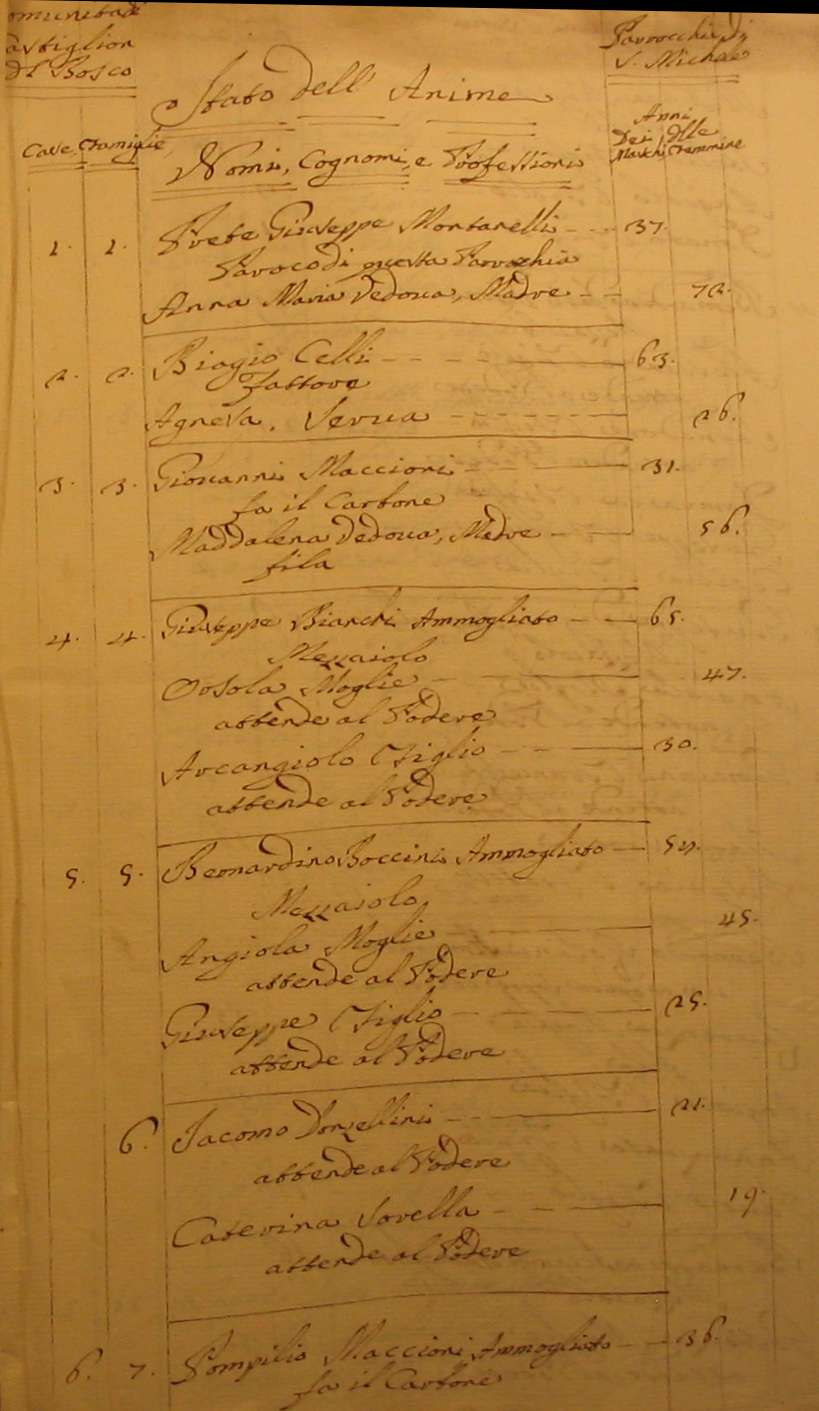 omunità di
astiglion
del Bosco
Parrocchia di
S. Michele
Stato dell' Anime
Case, Famiglie,
Nomi, Cognomi, e Professioni
Anni
Dei delle
Maschi Femmine
1. 1. Prete Giuseppe Montanelli 37.
Paroco di questa Parrochia
Anna Maria Vedova, Madre 72.
2. 2. Biagio Celli 63.
Fattore
Agnesa, Serva 26.
3. 3. Giovanni Maccioni 31.
fa il Carbone
Maddalena Vedova, Madre 56.
fila
4. 4. Giuseppe Bianchi Ammogliato 65.
Mezzaiolo
Orsola Moglie 47.
attende al Podere
Arcangiolo Figlio 30.
attende al Podere
5. 5. Bernardino Boccini Ammogliato 54.
Mezzaiolo
Angiola Moglie 45.
attende al Podere
Giuseppe Figlio 25.
attende al Podere
6. Jacomo Donzellini 21.
attende al Podere
Caterina Sorella 19.
attende al Podere
6. 7. Pompilio Maccioni Ammogliato 36.
fa il Carbone